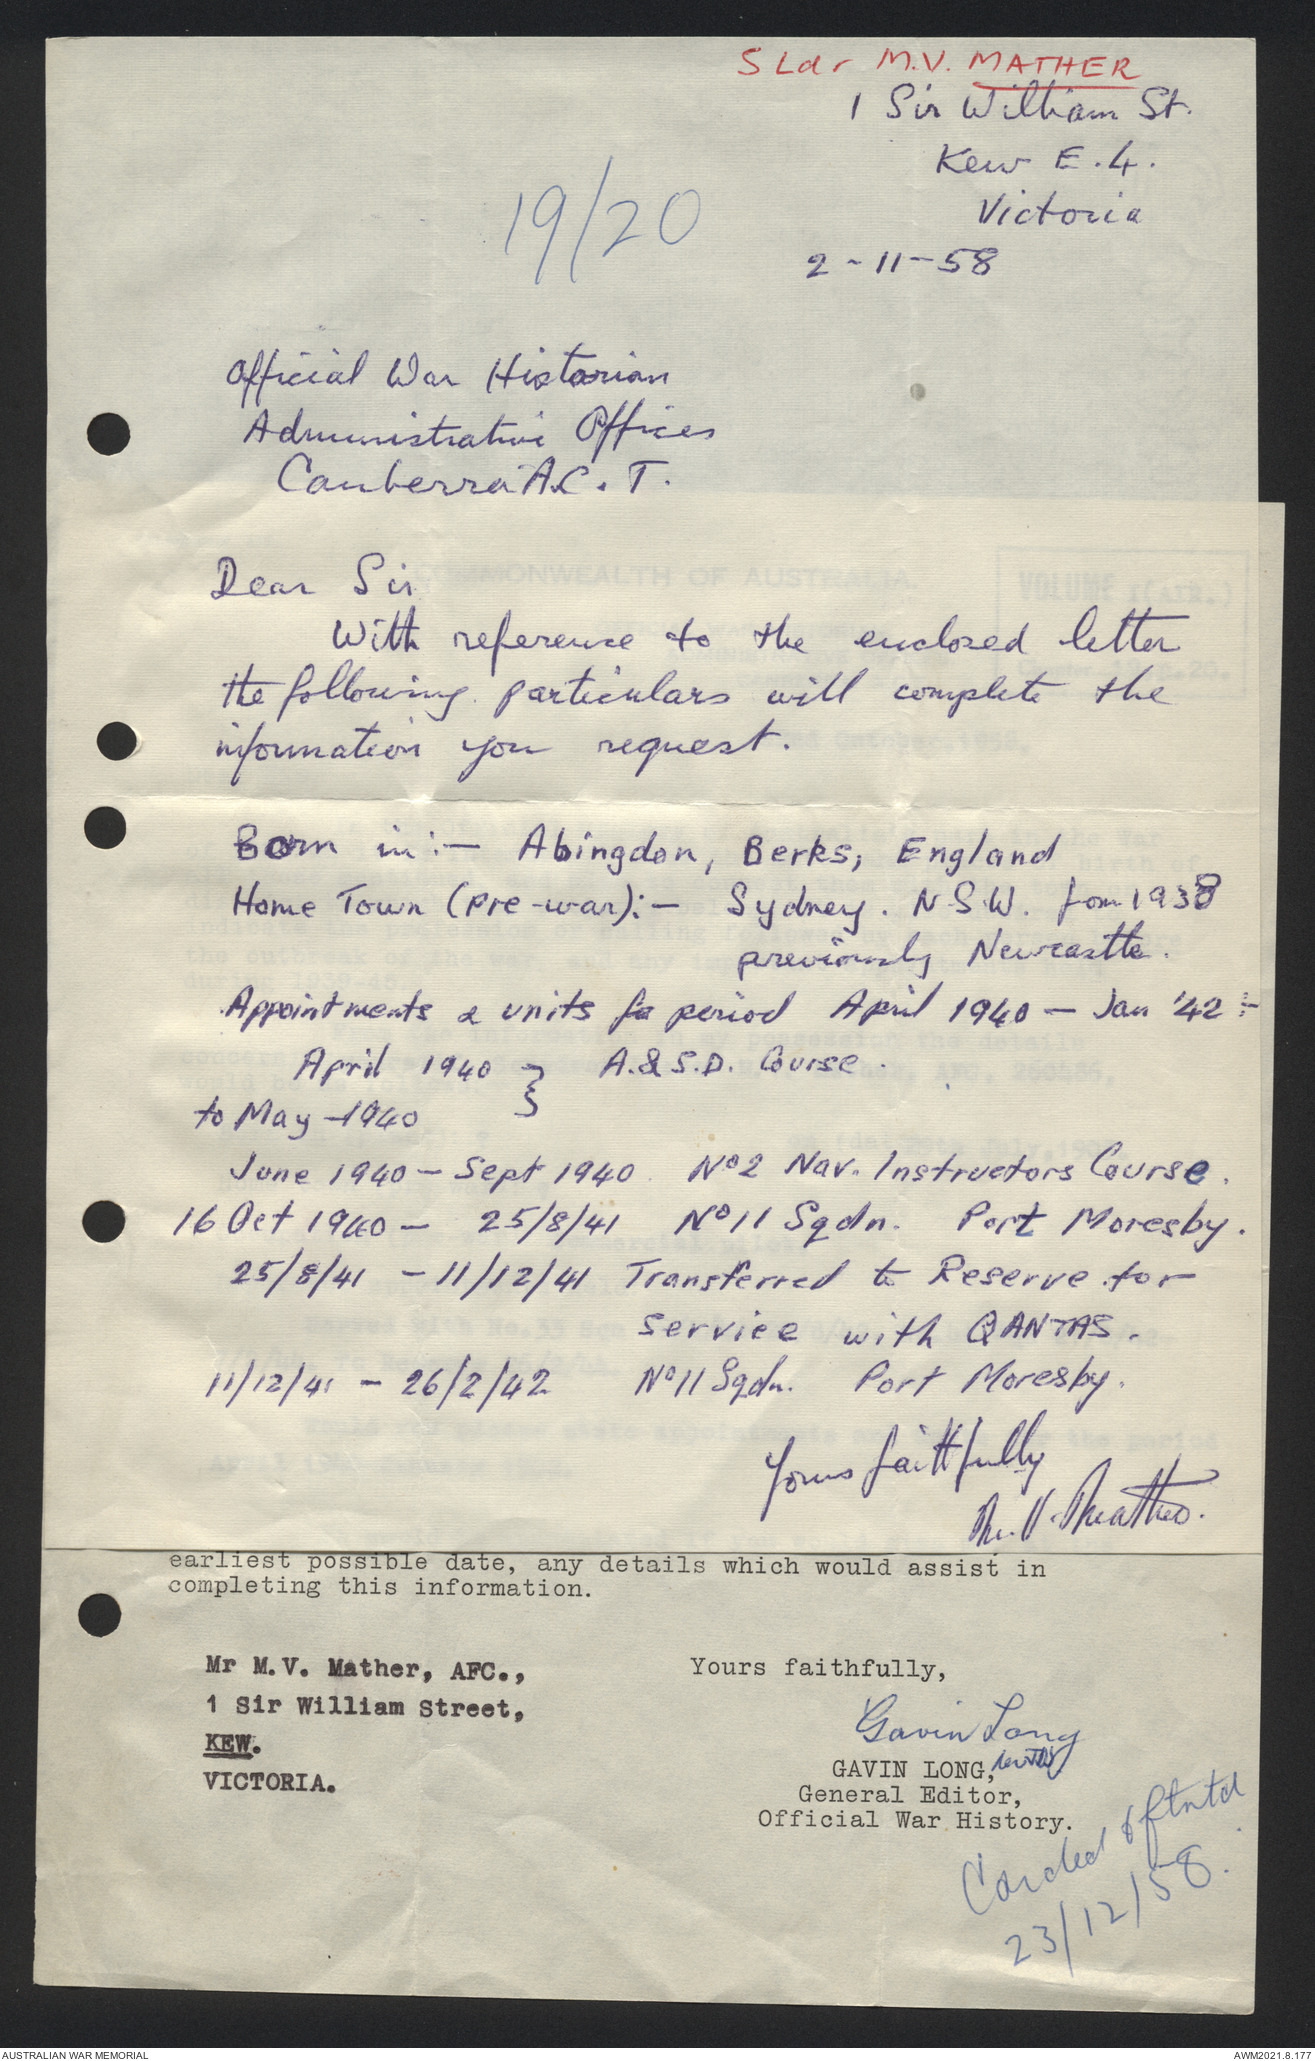 S Ldr M.V. MATHER
1 Sir William St.
Kew E.4.
Victoria
19/20
2-11-58
Official War Historian
Administrative Offices
Canberra A.C.T.
Dear Sir
With reference to the enclosed letter
the following particulars will complete the
information you request.
Born in:- Abingdon, Berks, England
Home Town (pre-war):- Sydney. N.S.W. from 1938
previously Newcastle.
Appointments & units for period April 1940 - Jan '42:-
April 1940 } A.&S.D. Course.
to May -1940
June 1940 - Sept 1940 No 2 Nav. Instructors Course.
16 Oct 1940 - 25/8/41 No 11 Sqdn. Port Moresby.
25/8/41 - 11/12/41 Transferred to Reserve for
service with QANTAS.
11/12/41 - 26/2/42 No 11 Sqdn. Port Moresby.
Yours faithfully
M.V. Mather.
earliest possible date, any details which would assist in
completing this information.
Mr M.V. Mather, AFC.,
1 Sir William Street,
KEW.
VICTORIA.
Yours faithfully,
Gavin Long
GAVIN LONG,
General Editor,
Official War History.
Carded & ftntd
23/12/58.
AUSTRALIAN WAR MEMORIAL
AWM2021.8.177